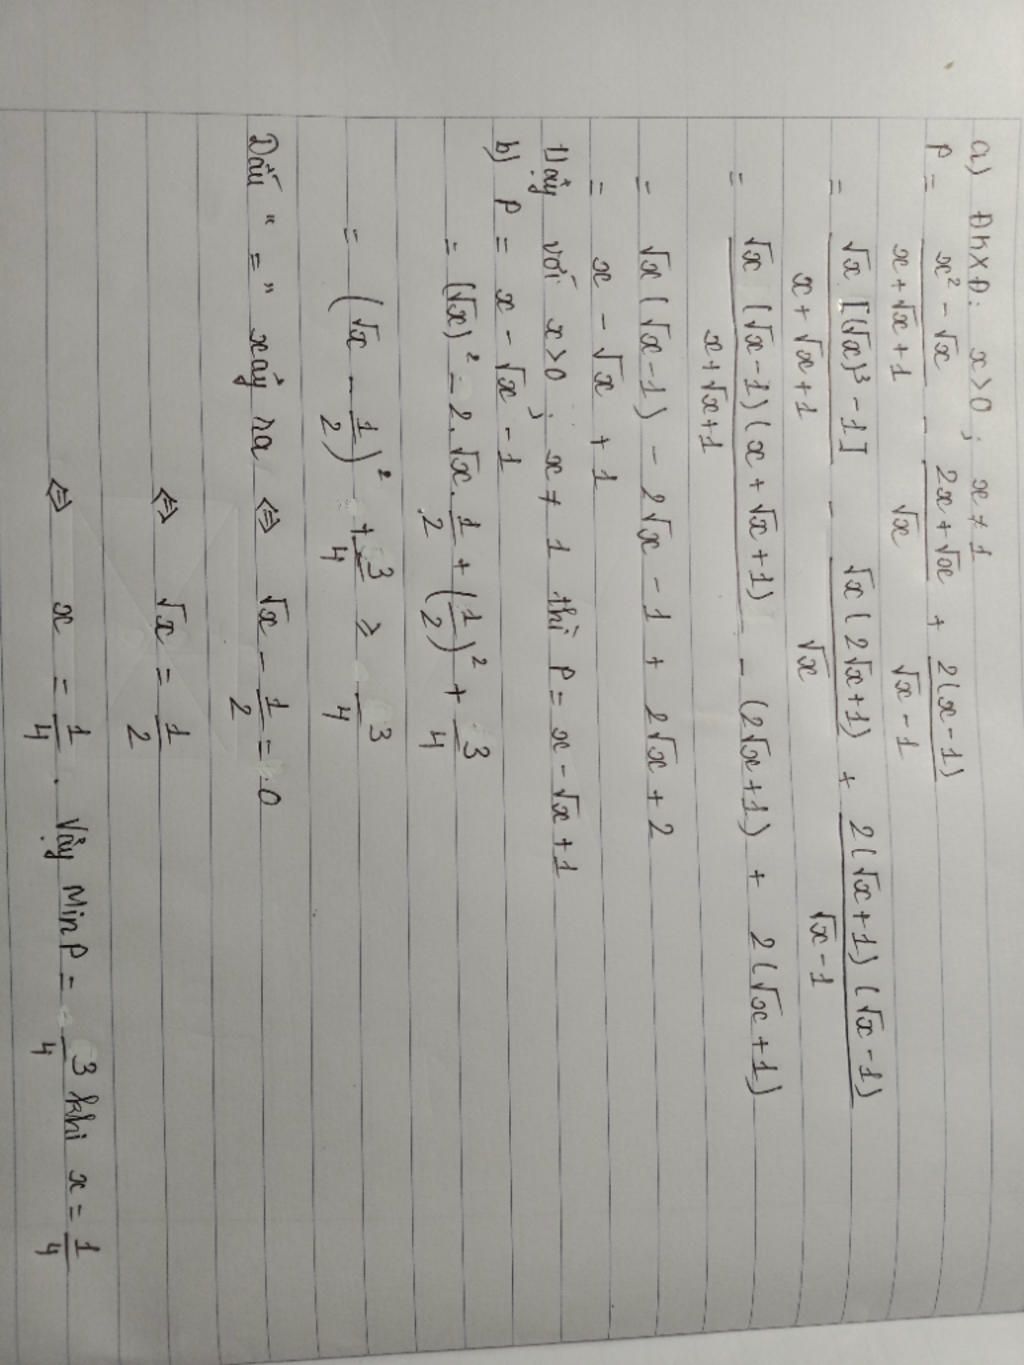 a) ĐKXĐ: x>0; x≠1
P = (x² - √x)/(x+√x+1) - (2x+√x)/√x + 2(x-1)/(√x-1)
= √x [(√x)³ - 1]/(x+√x+1) - √x(2√x+1)/√x + 2(√x+1)(√x-1)/(√x-1)
= √x (√x-1)(x+√x+1)/(x+√x+1) - (2√x+1) + 2(√x+1)
= √x(√x-1) - 2√x - 1 + 2√x + 2
= x - √x + 1
Vậy với x>0; x≠1 thì P = x-√x+1
b) P = x - √x - 1
= (√x)² - 2.√x.1/2 + (1/2)² + 3/4
= (√x - 1/2)² + 3/4 ≥ 3/4
Dấu "=" xảy ra ⇔ √x - 1/2 = 0
⇔ √x = 1/2
⇔ x = 1/4. Vậy Min P = 3/4 khi x = 1/4